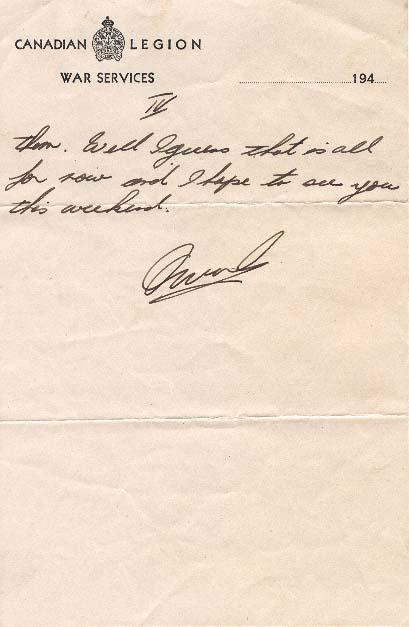 CANADIAN LEGION
WAR SERVICES
194
IV
them. Well I guess that is all
for now and I hope to see you
this weekend.